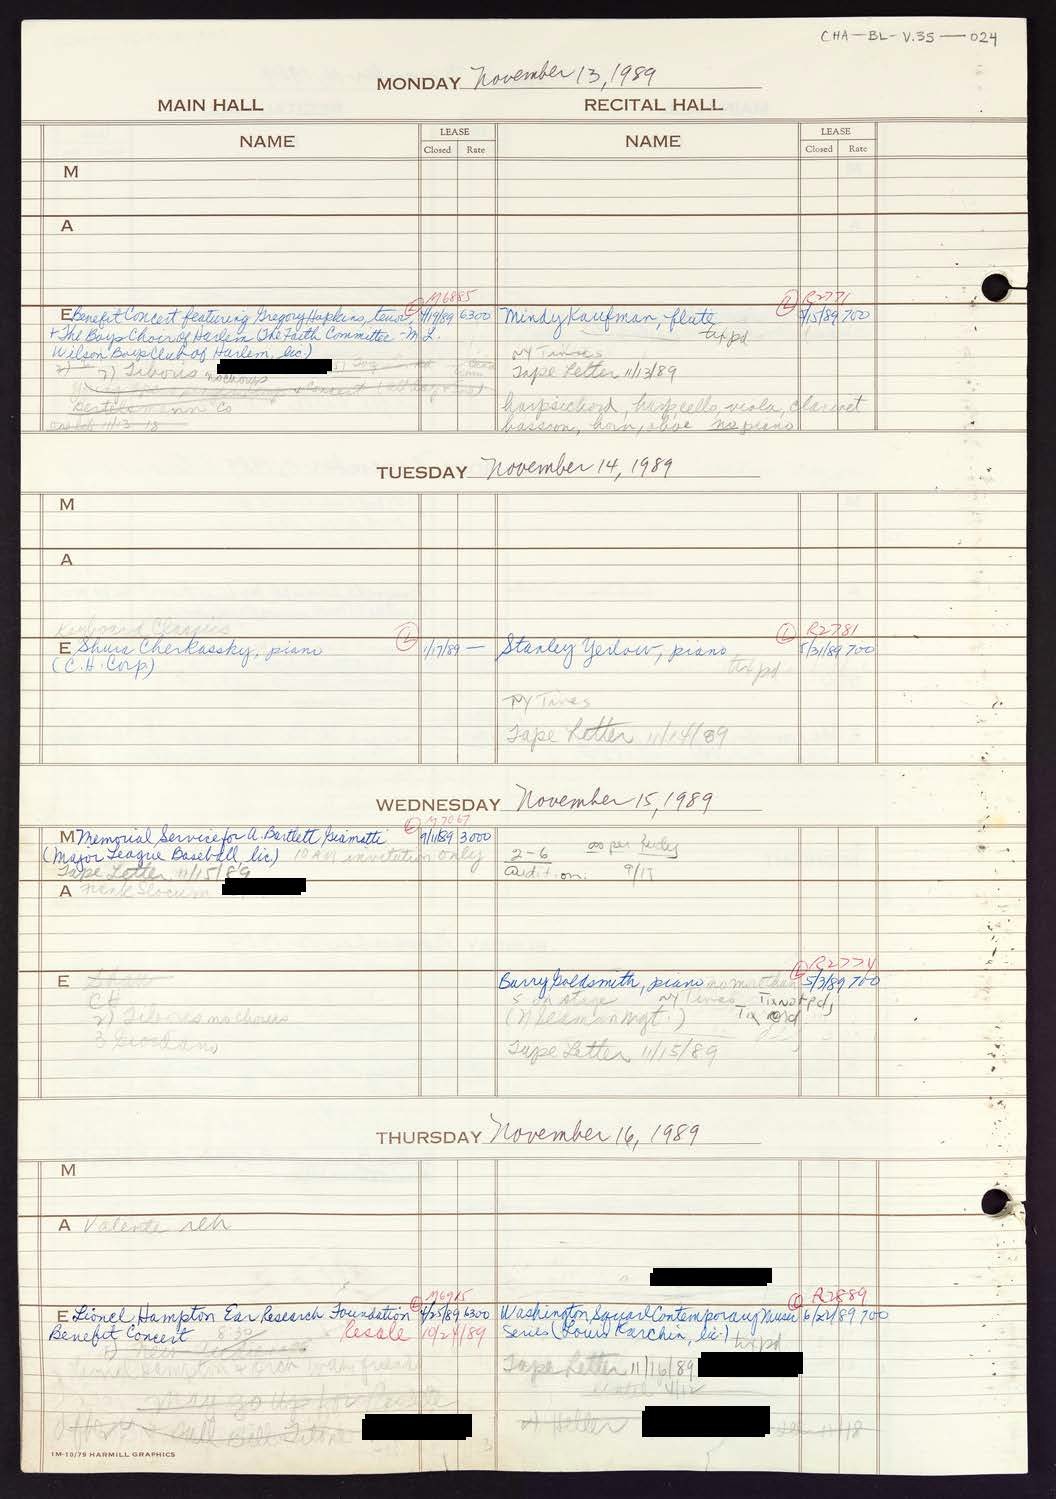 CHA-BL-V.35-024
MONDAY November 13, 1989
MAIN HALL RECITAL HALL
NAME LEASE Closed Rate NAME LEASE Closed Rate
M
A
M6885
E Benefit Concert featuring Gregory Hopkins, tenor, L 4/19/89 6300
+ The Boys Choir of Harlem (The Faith Committee - M. L.
Wilson Boys Club of Harlem, lic.)
2) Tiboris
no chorus
Bertelsmann Co
R2771
Mindy Kaufman, flute L 5/15/89 700
tix pd
NY Times
Tape Letter 11/13/89
harpsichord, harp, cello, viola, clarinet
bassoon, horn, oboe no piano
TUESDAY November 14, 1989
M
A
Keyboard Classics
E Shura Cherkassky, piano L 1/17/89 —
(C.H. Corp)
R2781
Stanley Yerlow, piano L 5/31/89 700
tix pd
NY Times
Tape Letter 11/14/89
WEDNESDAY November 15, 1989
M7067
M Memorial Service for A. Bartlett Giamatti L 9/11/89 3000
(Major League Baseball, lic) 10 AM invitation only
Tape Letter 11/15/89
2-6 as per
audition 9/15
A Frank Slocum
E
CH
2) Tiboris no chorus
3 Giordano
R2774
Barry Goldsmith, piano no more than L 5/3/89 700
5 on stage NY Times Tix not pd
Tix
Tape Letter 11/15/89
THURSDAY November 16, 1989
M
A Valente reh
M6915
E Lionel Hampton Ear Research Foundation L 4/25/89 6300
Benefit Concert Resale 10/24/89
R2889
Washington Square Contemporary Music L 6/22/89 700
Series (Louis Karchin, lic.) tix pd
Tape Letter 11/16/89
May go up for Resale
call Bill Titone
Heller
1M-10/79 HARMILL GRAPHICS